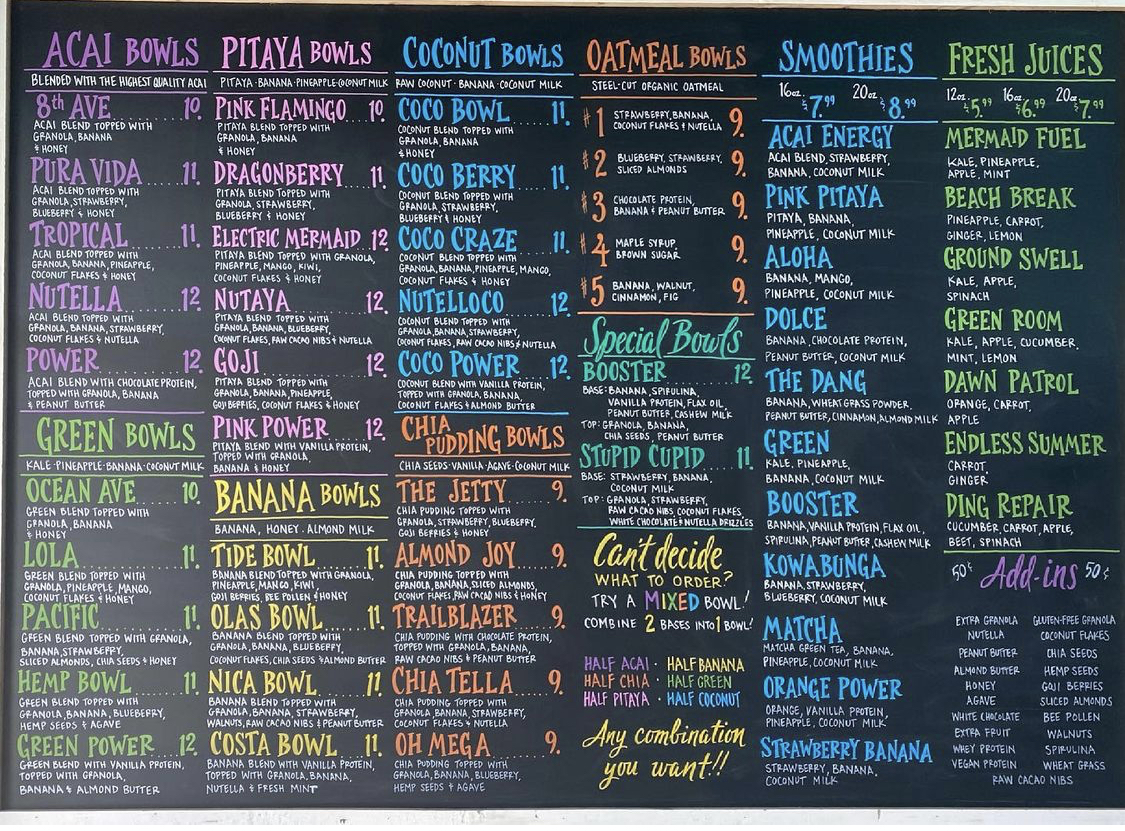 ACAI BOWLS
BLENDED WITH THE HIGHEST QUALITY ACAI
8th AVE 10.
ACAI BLEND TOPPED WITH
GRANOLA, BANANA
& HONEY
PURA VIDA 11.
ACAI BLEND TOPPED WITH
GRANOLA, STRAWBERRY,
BLUEBERRY & HONEY
TROPICAL 11.
ACAI BLEND TOPPED WITH
GRANOLA, BANANA, PINEAPPLE,
COCONUT FLAKES & HONEY
NUTELLA 12.
ACAI BLEND TOPPED WITH
GRANOLA, BANANA, STRAWBERRY,
COCONUT FLAKES & NUTELLA
POWER 12.
ACAI BLEND WITH CHOCOLATE PROTEIN,
TOPPED WITH GRANOLA, BANANA
& PEANUT BUTTER
GREEN BOWLS
KALE · PINEAPPLE · BANANA · COCONUT MILK
OCEAN AVE 10.
GREEN BLEND TOPPED WITH
GRANOLA, BANANA
& HONEY
LOLA 11.
GREEN BLEND TOPPED WITH
GRANOLA, PINEAPPLE, MANGO,
COCONUT FLAKES & HONEY
PACIFIC 11.
GREEN BLEND TOPPED WITH GRANOLA,
BANANA, STRAWBERRY,
SLICED ALMONDS, CHIA SEEDS & HONEY
HEMP BOWL 11.
GREEN BLEND TOPPED WITH
GRANOLA, BANANA, BLUEBERRY,
HEMP SEEDS & AGAVE
GREEN POWER 12.
GREEN BLEND WITH VANILLA PROTEIN,
TOPPED WITH GRANOLA,
BANANA & ALMOND BUTTER
PITAYA BOWLS
PITAYA · BANANA · PINEAPPLE · COCONUT MILK
PINK FLAMINGO 10.
PITAYA BLEND TOPPED WITH
GRANOLA, BANANA
& HONEY
DRAGONBERRY 11.
PITAYA BLEND TOPPED WITH
GRANOLA, STRAWBERRY,
BLUEBERRY & HONEY
ELECTRIC MERMAID 12.
PITAYA BLEND TOPPED WITH GRANOLA,
PINEAPPLE, MANGO, KIWI,
COCONUT FLAKES & HONEY
NUTAYA 12.
PITAYA BLEND TOPPED WITH
GRANOLA, BANANA, BLUEBERRY,
COCONUT FLAKES, RAW CACAO NIBS & NUTELLA
GOJI 12.
PITAYA BLEND TOPPED WITH
GRANOLA, BANANA, PINEAPPLE,
GOJI BERRIES, COCONUT FLAKES & HONEY
PINK POWER 12.
PITAYA BLEND WITH VANILLA PROTEIN,
TOPPED WITH GRANOLA,
BANANA & HONEY
BANANA BOWLS
BANANA, HONEY · ALMOND MILK
TIDE BOWL 11.
BANANA BLEND TOPPED WITH GRANOLA,
PINEAPPLE, MANGO, KIWI,
GOJI BERRIES, BEE POLLEN & HONEY
OLAS BOWL 11.
BANANA BLEND TOPPED WITH
GRANOLA, BANANA, BLUEBERRY,
COCONUT FLAKES, CHIA SEEDS & ALMOND BUTTER
NICA BOWL 11.
BANANA BLEND TOPPED WITH
GRANOLA, BANANA, STRAWBERRY,
WALNUTS, RAW CACAO NIBS & PEANUT BUTTER
COSTA BOWL 11.
BANANA BLEND WITH VANILLA PROTEIN,
TOPPED WITH GRANOLA, BANANA,
NUTELLA & FRESH MINT
COCONUT BOWLS
RAW COCONUT · BANANA · COCONUT MILK
COCO BOWL 11.
COCONUT BLEND TOPPED WITH
GRANOLA, BANANA
& HONEY
COCO BERRY 11.
COCONUT BLEND TOPPED WITH
GRANOLA, STRAWBERRY,
BLUEBERRY & HONEY
COCO CRAZE 11.
COCONUT BLEND TOPPED WITH
GRANOLA, BANANA, PINEAPPLE, MANGO,
COCONUT FLAKES & HONEY
NUTELLOCO 12.
COCONUT BLEND TOPPED WITH
GRANOLA, BANANA, STRAWBERRY,
COCONUT FLAKES, RAW CACAO NIBS & NUTELLA
COCO POWER 12.
COCONUT BLEND WITH VANILLA PROTEIN,
TOPPED WITH GRANOLA, BANANA,
COCONUT FLAKES & ALMOND BUTTER
CHIA PUDDING BOWLS
CHIA SEEDS · VANILLA · AGAVE · COCONUT MILK
THE JETTY 9.
CHIA PUDDING TOPPED WITH
GRANOLA, STRAWBERRY, BLUEBERRY,
GOJI BERRIES & HONEY
ALMOND JOY 9.
CHIA PUDDING TOPPED WITH
GRANOLA, BANANA, SLICED ALMONDS,
COCONUT FLAKES, RAW CACAO NIBS & HONEY
TRAILBLAZER 9.
CHIA PUDDING WITH CHOCOLATE PROTEIN,
TOPPED WITH GRANOLA, BANANA,
RAW CACAO NIBS & PEANUT BUTTER
CHIA TELLA 9.
CHIA PUDDING TOPPED WITH
GRANOLA, BANANA, STRAWBERRY,
COCONUT FLAKES & NUTELLA
OH MEGA 9.
CHIA PUDDING TOPPED WITH
GRANOLA, BANANA, BLUEBERRY,
HEMP SEEDS & AGAVE
OATMEAL BOWLS
STEEL-CUT ORGANIC OATMEAL
#1 STRAWBERRY, BANANA, 9.
COCONUT FLAKES & NUTELLA
#2 BLUEBERRY, STRAWBERRY, 9.
SLICED ALMONDS
#3 CHOCOLATE PROTEIN, 9.
BANANA & PEANUT BUTTER
#4 MAPLE SYRUP, 9.
BROWN SUGAR
#5 BANANA, WALNUT, 9.
CINNAMON, FIG
Special Bowls
BOOSTER 12.
BASE: BANANA, SPIRULINA,
VANILLA PROTEIN, FLAX OIL,
PEANUT BUTTER, CASHEW MILK
TOP: GRANOLA, BANANA,
CHIA SEEDS, PEANUT BUTTER
STUPID CUPID 11.
BASE: STRAWBERRY, BANANA,
COCONUT MILK
TOP: GRANOLA, STRAWBERRY,
RAW CACAO NIBS, COCONUT FLAKES,
WHITE CHOCOLATE & NUTELLA DRIZZLES
Can't decide
WHAT TO ORDER?
TRY A MIXED BOWL!
COMBINE 2 BASES INTO 1 BOWL!
HALF ACAI · HALF BANANA
HALF CHIA · HALF GREEN
HALF PITAYA · HALF COCONUT
Any combination
you want!!
SMOOTHIES
16oz. $7.99 20oz. $8.99
ACAI ENERGY
ACAI BLEND, STRAWBERRY,
BANANA, COCONUT MILK
PINK PITAYA
PITAYA, BANANA,
PINEAPPLE, COCONUT MILK
ALOHA
BANANA, MANGO,
PINEAPPLE, COCONUT MILK
DOLCE
BANANA, CHOCOLATE PROTEIN,
PEANUT BUTTER, COCONUT MILK
THE DANG
BANANA, WHEAT GRASS POWDER,
PEANUT BUTTER, CINNAMON, ALMOND MILK
GREEN
KALE, PINEAPPLE,
BANANA, COCONUT MILK
BOOSTER
BANANA, VANILLA PROTEIN, FLAX OIL,
SPIRULINA, PEANUT BUTTER, CASHEW MILK
KOWABUNGA
BANANA, STRAWBERRY,
BLUEBERRY, COCONUT MILK
MATCHA
MATCHA GREEN TEA, BANANA,
PINEAPPLE, COCONUT MILK
ORANGE POWER
ORANGE, VANILLA PROTEIN,
PINEAPPLE, COCONUT MILK
STRAWBERRY BANANA
STRAWBERRY, BANANA,
COCONUT MILK
FRESH JUICES
12oz. $5.99 16oz. $6.99 20oz. $7.99
MERMAID FUEL
KALE, PINEAPPLE,
APPLE, MINT
BEACH BREAK
PINEAPPLE, CARROT,
GINGER, LEMON
GROUND SWELL
KALE, APPLE,
SPINACH
GREEN ROOM
KALE, APPLE, CUCUMBER,
MINT, LEMON
DAWN PATROL
ORANGE, CARROT,
APPLE
ENDLESS SUMMER
CARROT,
GINGER
DING REPAIR
CUCUMBER, CARROT, APPLE,
BEET, SPINACH
50¢ Add-ins 50¢
EXTRA GRANOLA GLUTEN-FREE GRANOLA
NUTELLA COCONUT FLAKES
PEANUT BUTTER CHIA SEEDS
ALMOND BUTTER HEMP SEEDS
HONEY GOJI BERRIES
AGAVE SLICED ALMONDS
WHITE CHOCOLATE BEE POLLEN
EXTRA FRUIT WALNUTS
WHEY PROTEIN SPIRULINA
VEGAN PROTEIN WHEAT GRASS
RAW CACAO NIBS